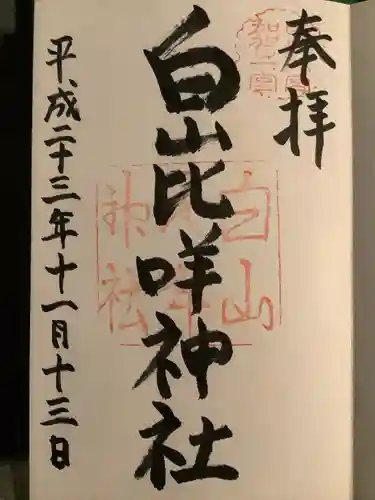 奉拝
白山比咩神社
平成二十三年十一月十三日
白山
神社